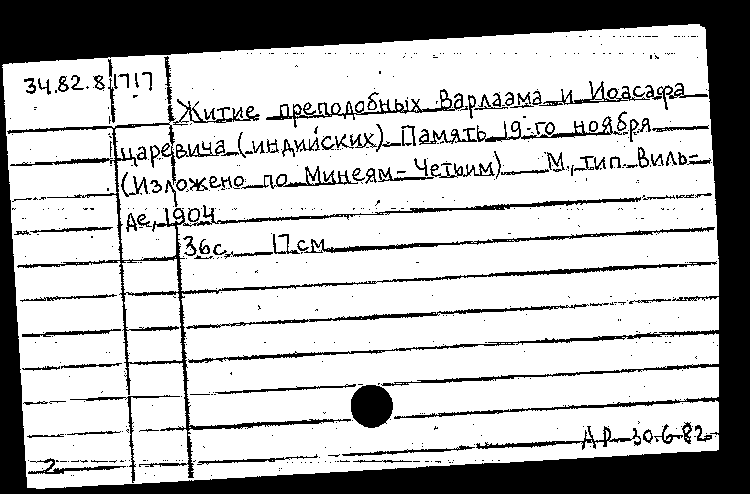 34.82.8 17!7
Житие преподобных Варлаама и Иоасафа
царевича (индийских). Память 19-го ноября.
(Изложено по Минеям-Четьим) М, тип. Виль=
де, 1904
36с. 17 см.
АР 30.6.82.
2